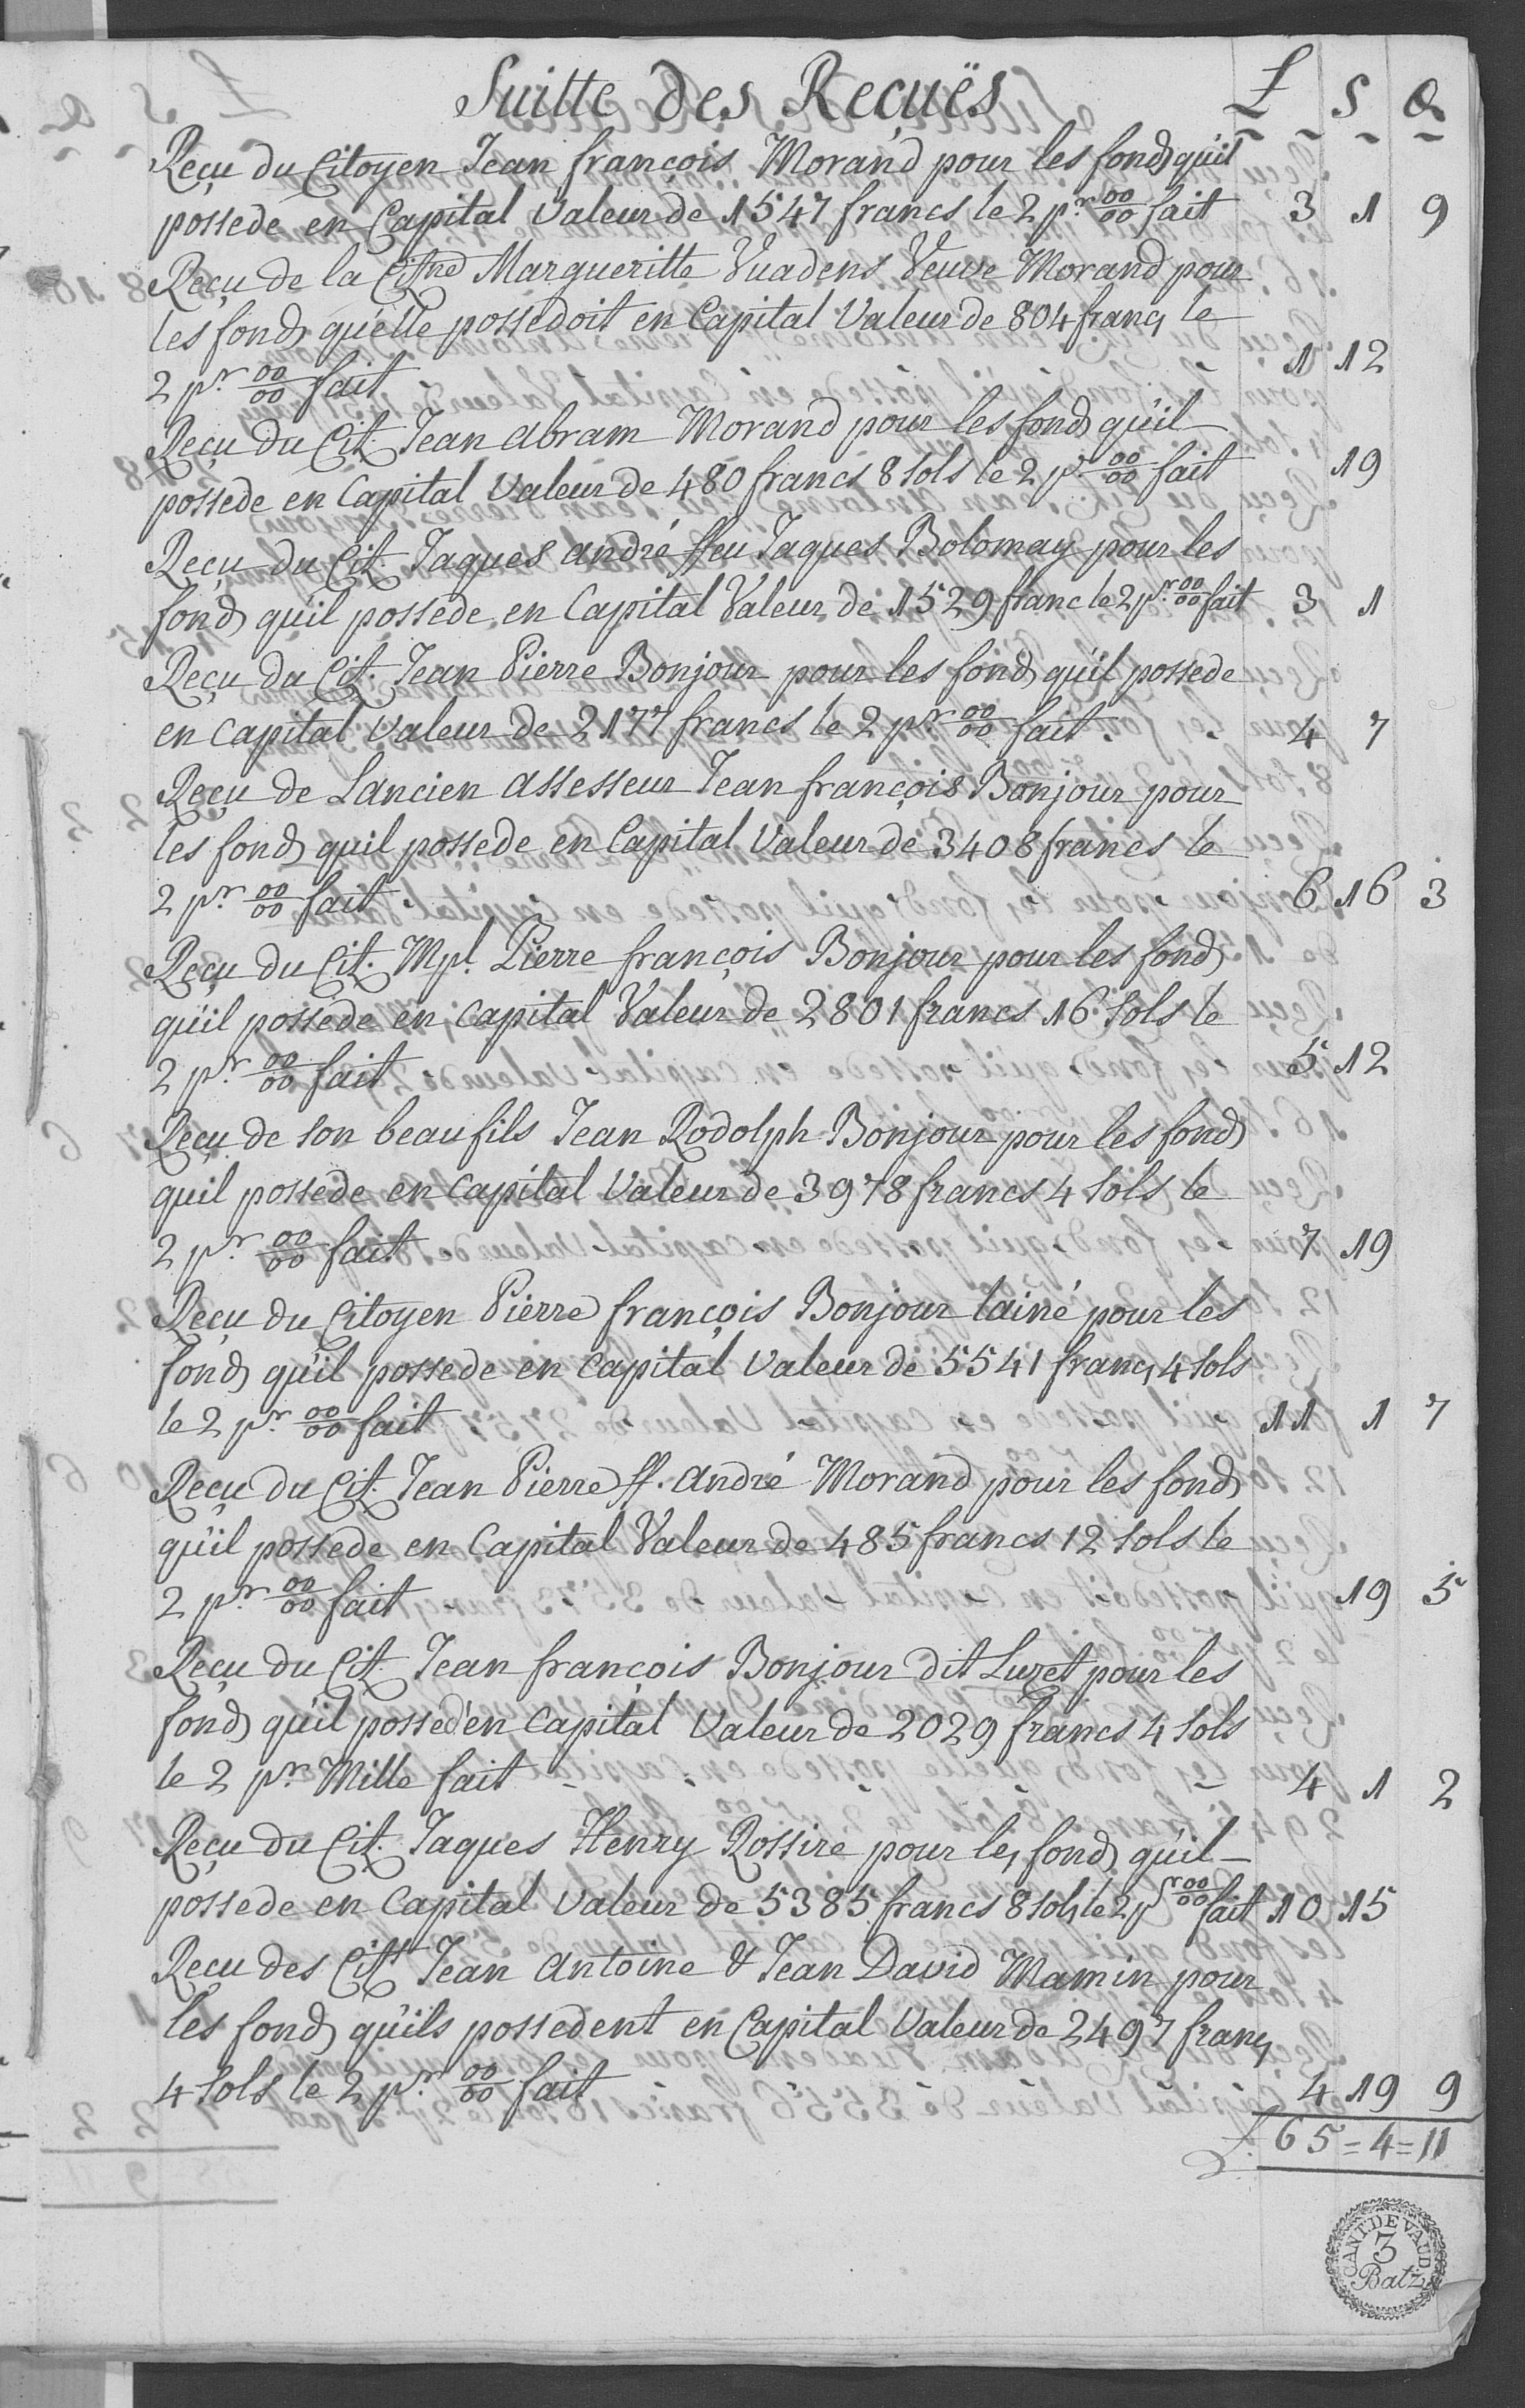 Suitte des Reçuës £ S &
Reçu du Citoyen Jean françois Morand pour les fonds quil
possede en Capital Valeur de 1547 francs le 2 pr 00/00 fait 3 1 9
Reçu de la Citne Margueritte Vuadens Veuve Morand pour
les fonds qu'elle possedoit en Capital Valeur de 804 francs le
2 pr 00/00 fait 1 12
Reçu du Cit. Jean Abram Morand pour les fonds qu'il
possede en Capital Valeur de 480 francs 8 sols le 2 pr 00/00 fait 19
Reçu du Cit. Jaques andré ffeu Jaques Bolomay pour les
fonds qu'il possede en Capital Valeur de 1529 franc le 2 pr 00/00 fait 3 1
Reçu du Cit. Jean Pierre Bonjour pour les fonds qu'il possede
en Capital Valeur de 2177 francs le 2 pr 00/00 fait. 4 7
Reçu de Lancien assesseur Jean françois Bonjour pour
les fonds quil possede en Capital Valeur de 3408 francs le
2 pr 00/00 fait 6 16 3
Reçu du Cit. Mpl. Pierre françois Bonjour pour les fonds
qu'il possede en Capital Valeur de 2801 francs 16 sols le
2 pr 00/00 fait 5 12
Reçu de son beau fils Jean Rodolph Bonjour pour les fonds
quil possede en Capital Valeur de 3978 francs 4 sols le
2 pr 00/00 fait 7 19
Reçu du Citoyen Pierre françois Bonjour lainé pour les
fonds qu'il possede en Capital Valeur de 5541 francs 4 sols
le 2 pr 00/00 fait 11 1 7
Reçu du Cit. Jean Pierre ff. André Morand pour les fonds
qu'il possede en Capital Valeur de 485 francs 12 sols le
2 pr 00/00 fait 19 5
Reçu du Cit. Jean françois Bonjour dit Luzet pour les
fonds qu'il possed'en Capital Valeur de 2029 francs 4 sols
le 2 pr Mille fait 4 1 2
Reçu du Cit. Jaques Henry Rossire pour les fonds qu'il
possede en Capital Valeur de 5385 francs 8 sols le 2 pr 00/00 fait 10 15
Reçu des Citts Jean Antoine & Jean David Mamin pour
les fonds qu'ils possedent en Capital Valeur de 2497 francs
4 sols le 2 pr 00/00 fait 4 19 9
£. 65=4=11
CANT. DE VAUD.
3
Batz